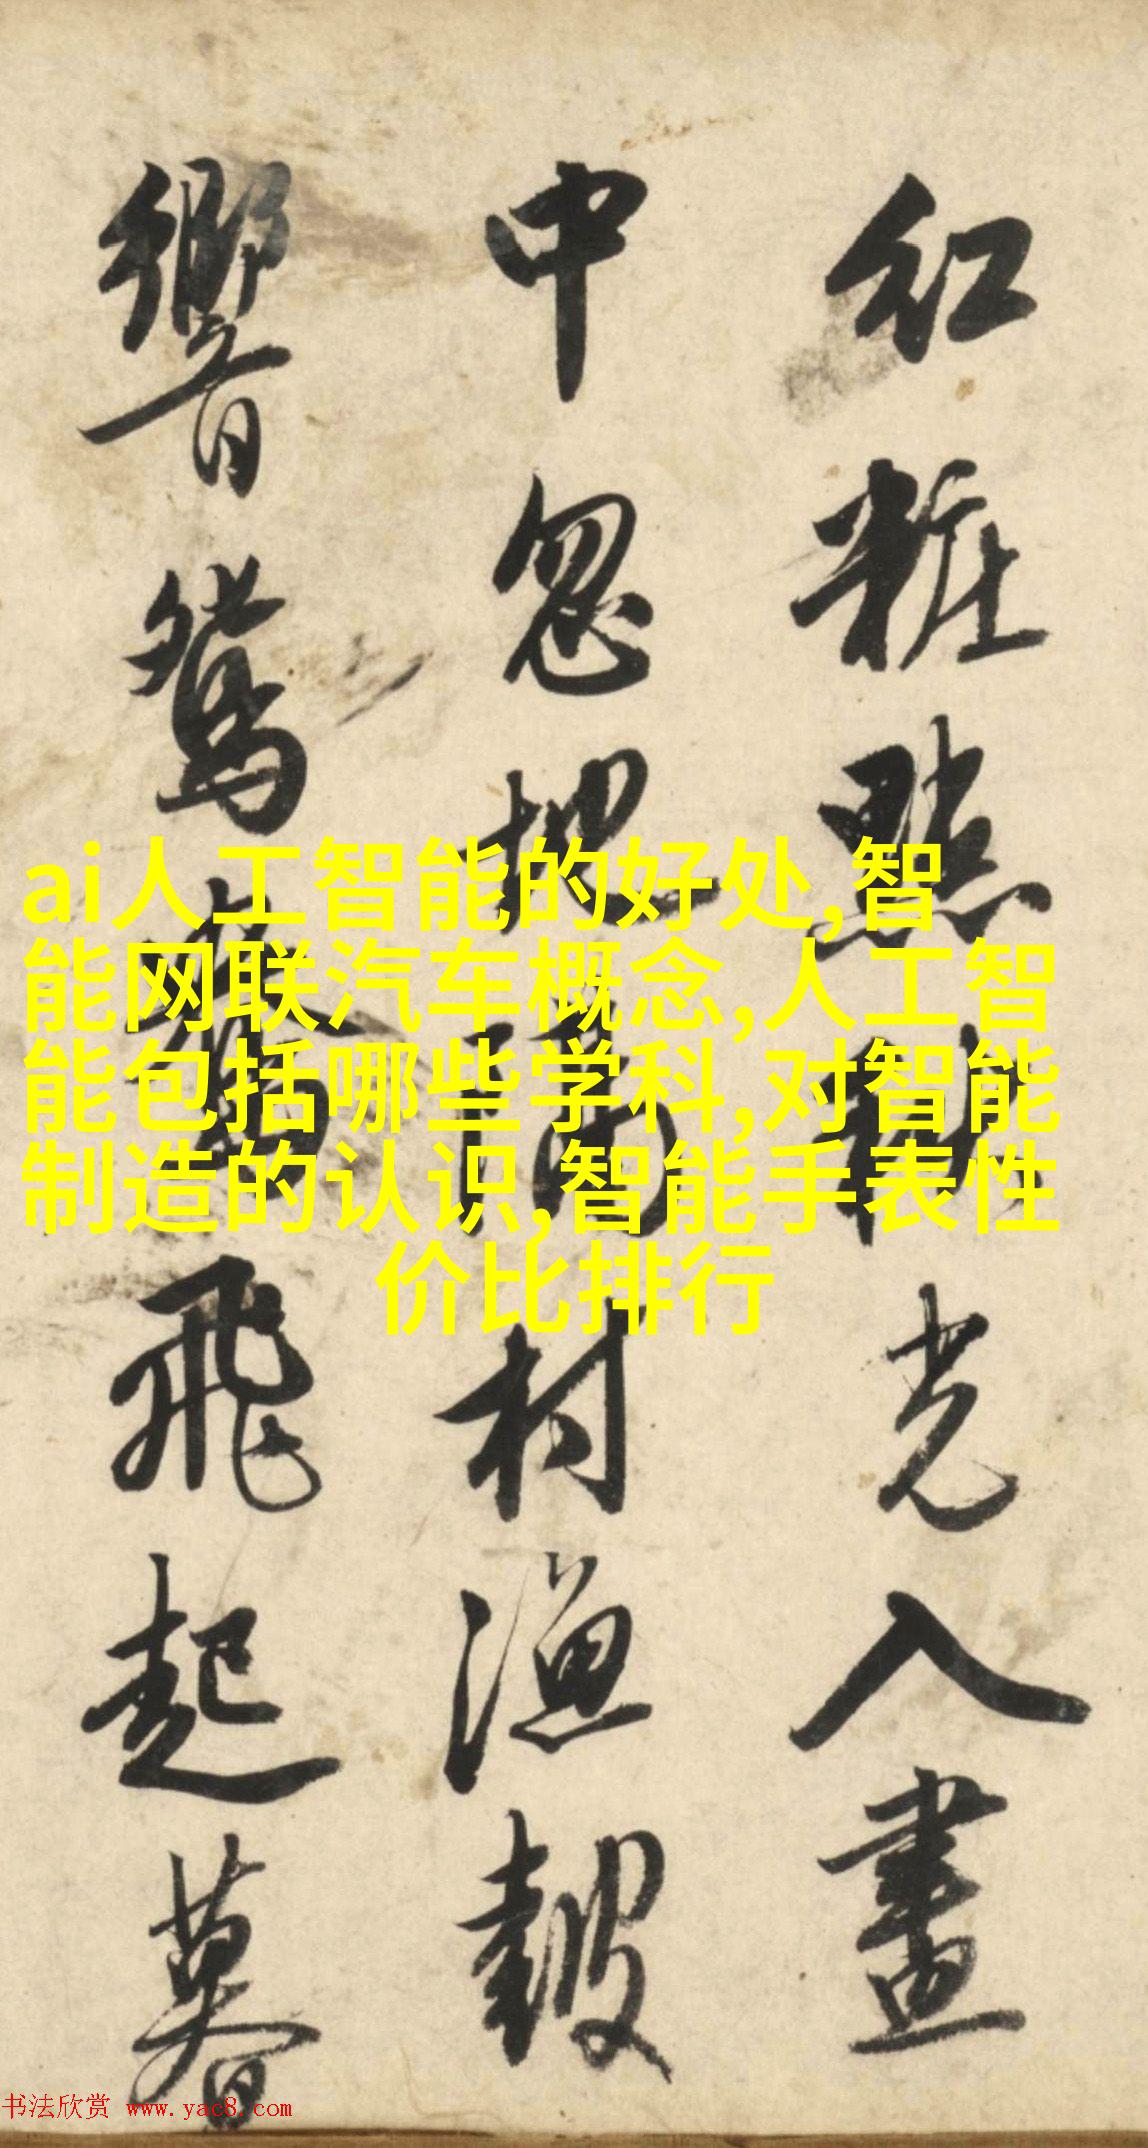 紅粧點光入畫
中忽村漁鼓
響鴛鴦飛起暮
ai人工智能的好处,智
能网联汽车概念,人工智
能包括哪些学科,对智能
制造的认识,智能手表性
价比排行
书法欣赏 www.yac8.com